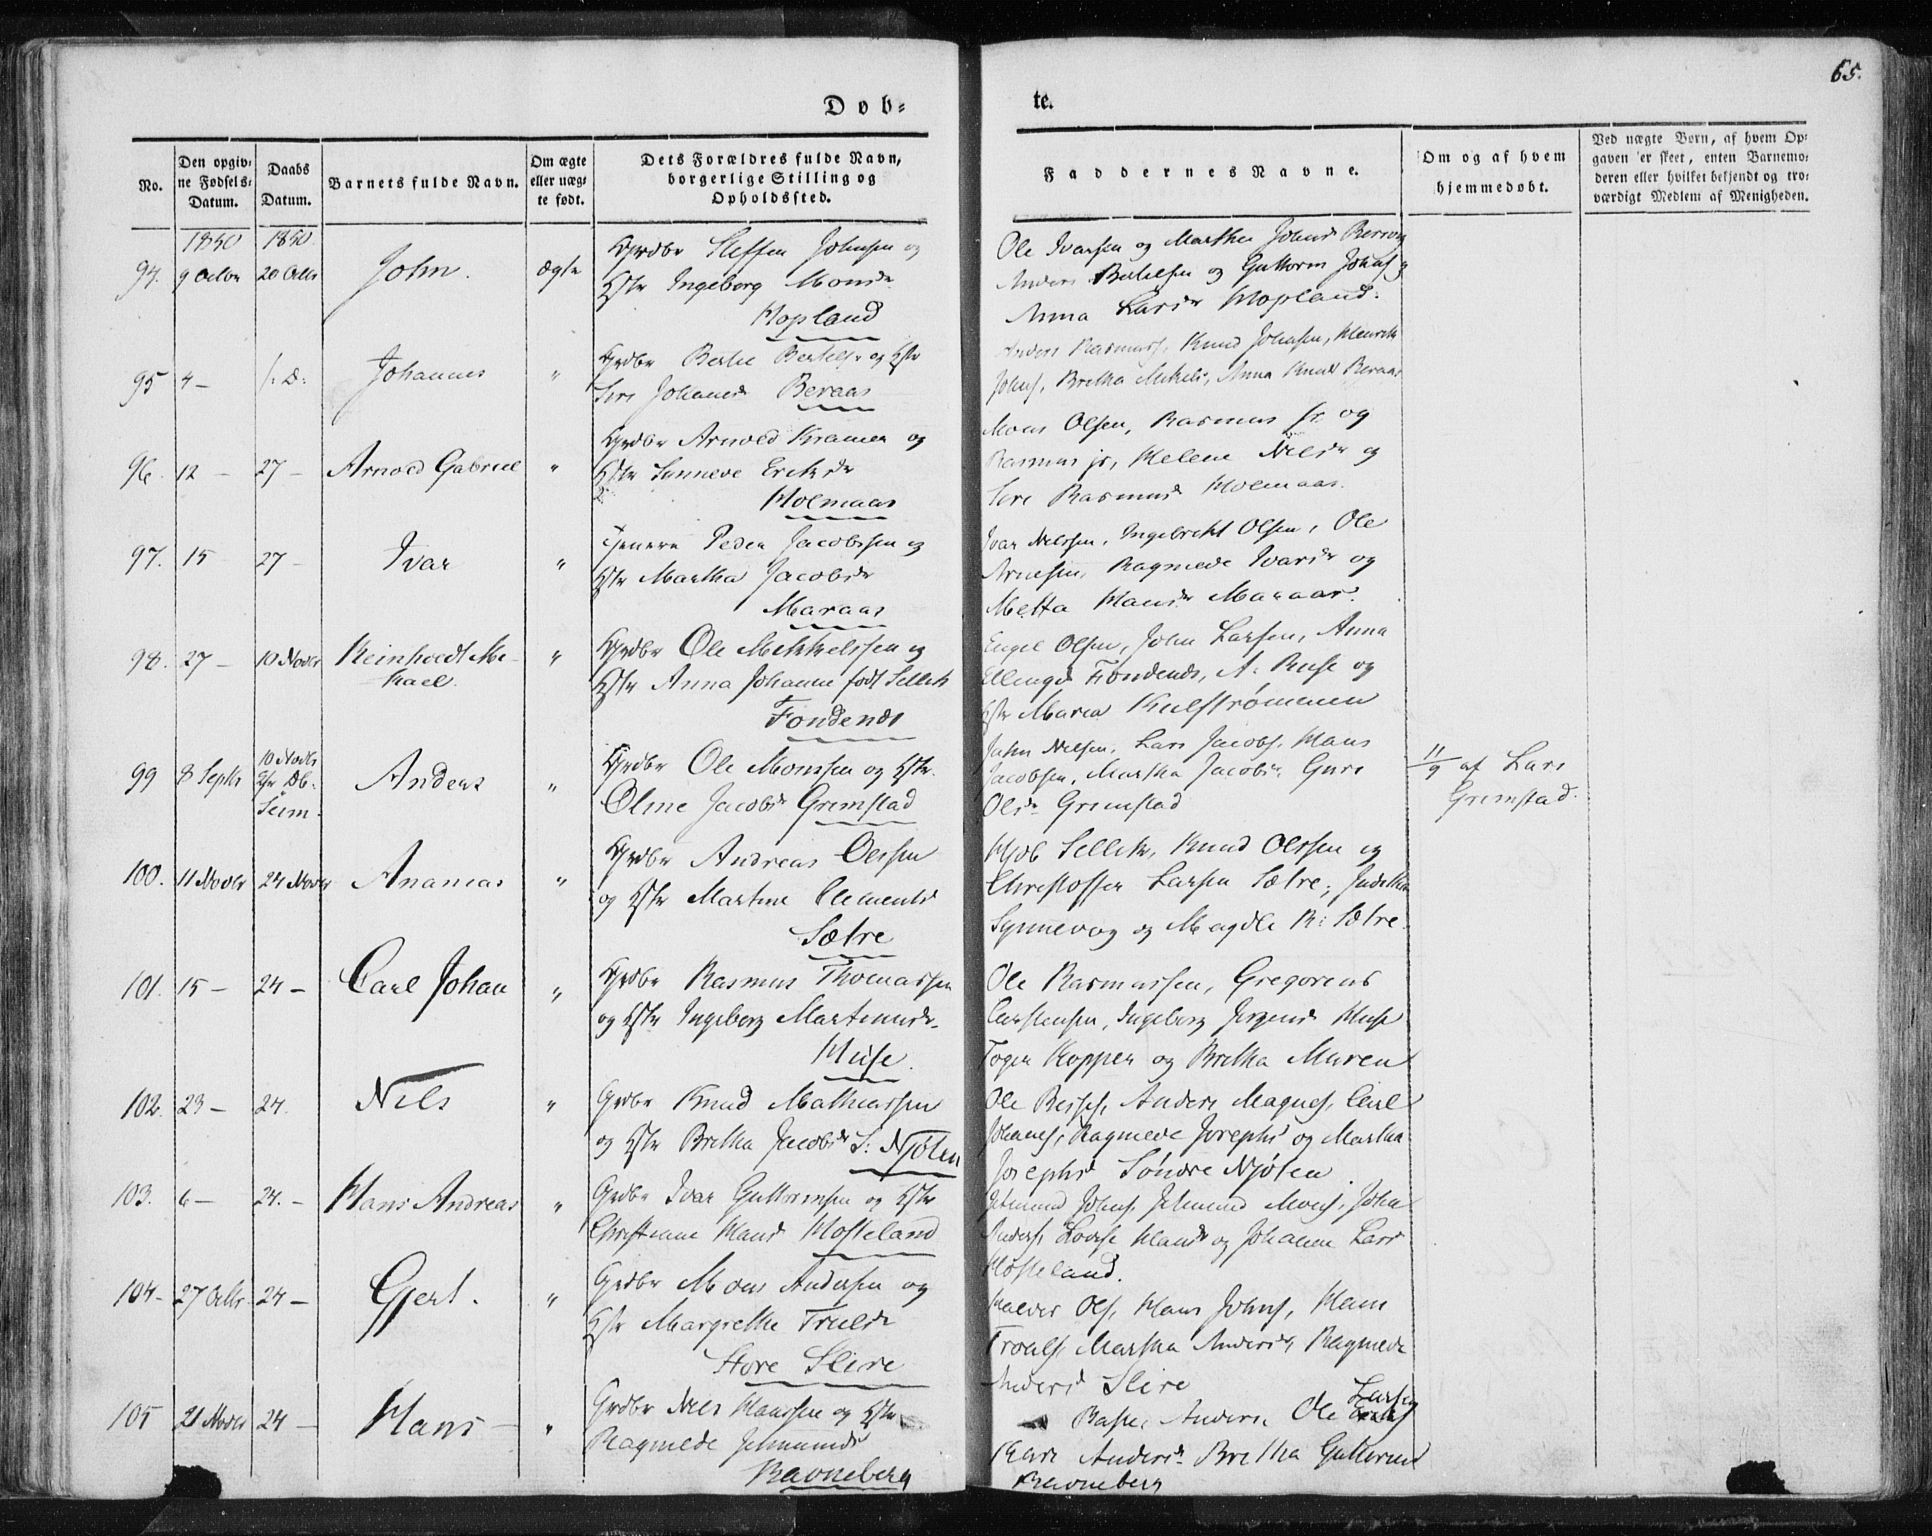 65.
Dob=
te.
No.
Den opgiv=
ne Fødsels=
Datum.
Daabs
Datum.
Barnets fulde Navn.
Om ægte
eller uæg=
te født.
Dets Forældres fulde Navn,
borgerlige Stilling og
Opholdssted.
Faddernes Navne.
Om og af hvem
hjemmedøbt.
Ved uægte Børn, af hvem Op=
gaven er skeet, enten Barnemo=
deren eller hvilket bekjendt og tro=
værdigt Medlem af Menigheden.
1850 1850
94. 9 Octbr 20 Octbr John. ægte
Grdbr Steffen Johnsen og
Hstr Ingeborg Monsdr
Hopland
Ole Ivarsen og Martha Johnsd
Anders Bertelsen og Guttorm Johns
Anna Larsdr Hopland.
95 4 — Johannes "
Grdbr Bertel Bertels. og Hstr
Siri Johansd Beraas
Anders Rasmuss, Knud Johnsen, Henrik
Johns, Bretha Mikelsd, Anna Knuds Beraas
96. 12 — 27 — Arnold Gabriel "
Grdbr Arnold Kramer og
Hstr Synneve Eriksdr
Holmaas
Mons Olsen, Rasmus sr. og
Rasmus jr, Helene Nilsdr og
Siri Rasmusd Holmaas.
97. 15 27 — Ivar "
Peder Jacobsen og
Hstr Martha Jacobsdr
Maraas
Ivar Nilssen, Ingebrikt Olsen, Ole
Arnesen, Ragnilde Ivarsdr og
Metta Hansdr Maraas.
98. 27 — 10 Novbr Reinholdt Mi-
kael. "
Grdbr Ole Mikkelssen og
Hstr Anna Johanne født Sellek
Fondenes
Engel Olsen, John Larsen, Anna
Ellingsd Fondenes, A. Ruse og
Hstr Maren Kulstrømmen
99 8 Septbr 10 Novbr
Seim. Anders "
Grdbr Ole Monssen og Hstr.
Oline Jacobsd Grimstad
John Nilsen, Lars Jacobs, Hans
Jacobsen, Martha Jacobsdr Guri
Olsdr Grimstad
11/9 af Lars
Grimstad.
100. 11 Novbr 24 Novbr Ananias "
Grdbr Andreas Olssen
og Hstr Martine Clementsd
Sætre
Sellek, Knud Olssen og
Christoffer Larsen Sætre,
Synnevag og Magdle R: Sætre.
101. 15 — 24 — Carl Johan "
Grdbr Rasmus Thomassen
og Hstr Ingeborg Martinusdr.
Huse.
Ole Rasmussen, Gregorius
Carstensen, Ingeborg Jørgensd Huse
Koppen og Bretha Maren
102. 23 — 24. Nils "
Grdbr Knud Mathiassen
og Hstr Bretha Jacobsdr S. Njøten
Ole Anders Magnes, Carl
Johans, Ragnilde Josephsd og Martha
Josephsd Søndre Njøten.
103. 6 — 24. — Hans Andreas "
Grdbr Ivar Guttormsen og Hstr
Christiane Hansd Hosteland
Jetmund Johns, Jetmund Mons, John
Anders, Lovise Hansdr og Johanne Larsd
Hosteland.
104 — 27 Octbr 24 — Gjert. "
Grdbr Mons Andersen og
Hstr Margrethe Trulsdr
Store Slire
Halvor Ols, Hans Johns, Hans
Troels, Martha Andersd, Ragnilde
Andersd Slire
105 21 Novbr 24 — Hans — "
Grdbr Nils Hanssen og Hstr
Ragnilde Jetmundsd
Ravneberg
Anders, Ole Larsen
Kari Andersdr Bretha Guttormsd
Ravneberg